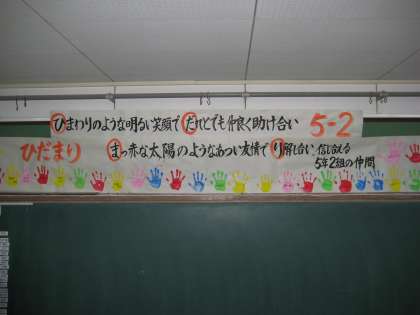 ひまわりのような明るい笑顔で だれとでも仲良く助け合い 5-2
ひだまり まっ赤な太陽のようなあつい友情で り解し合い、信じ合える
5年2組の仲間